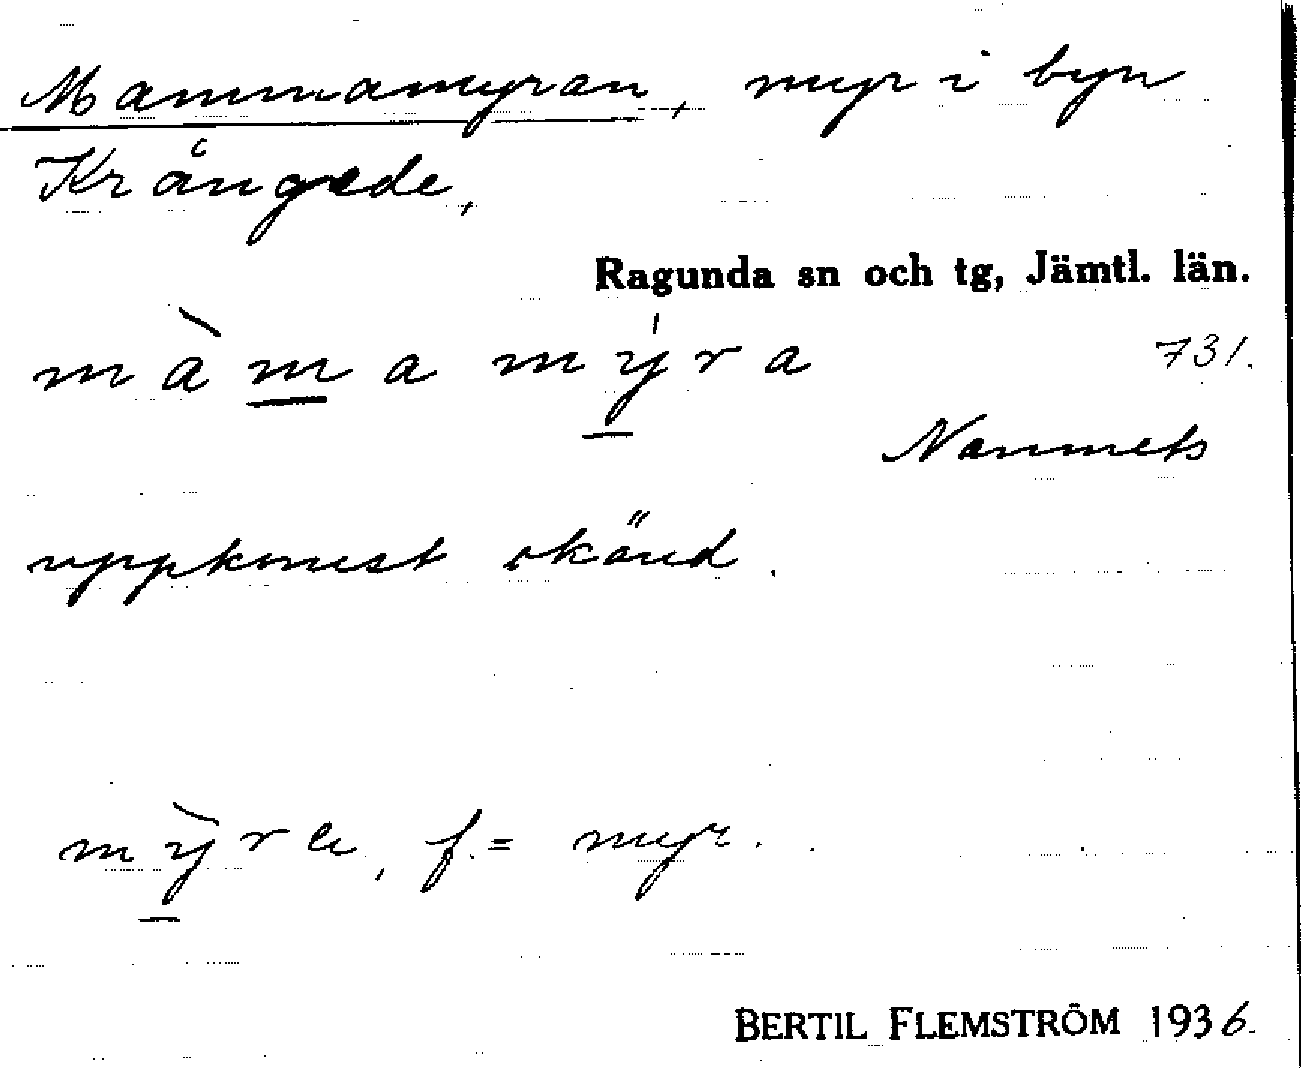 Mammamyran, myr i byn
Krångede,
Ragunda sn och tg, Jämtl. län.
màmamýra 731.
Namnets
uppkomst okänd.
mỳra, f. = myr.
BERTIL FLEMSTRÖM 1936.